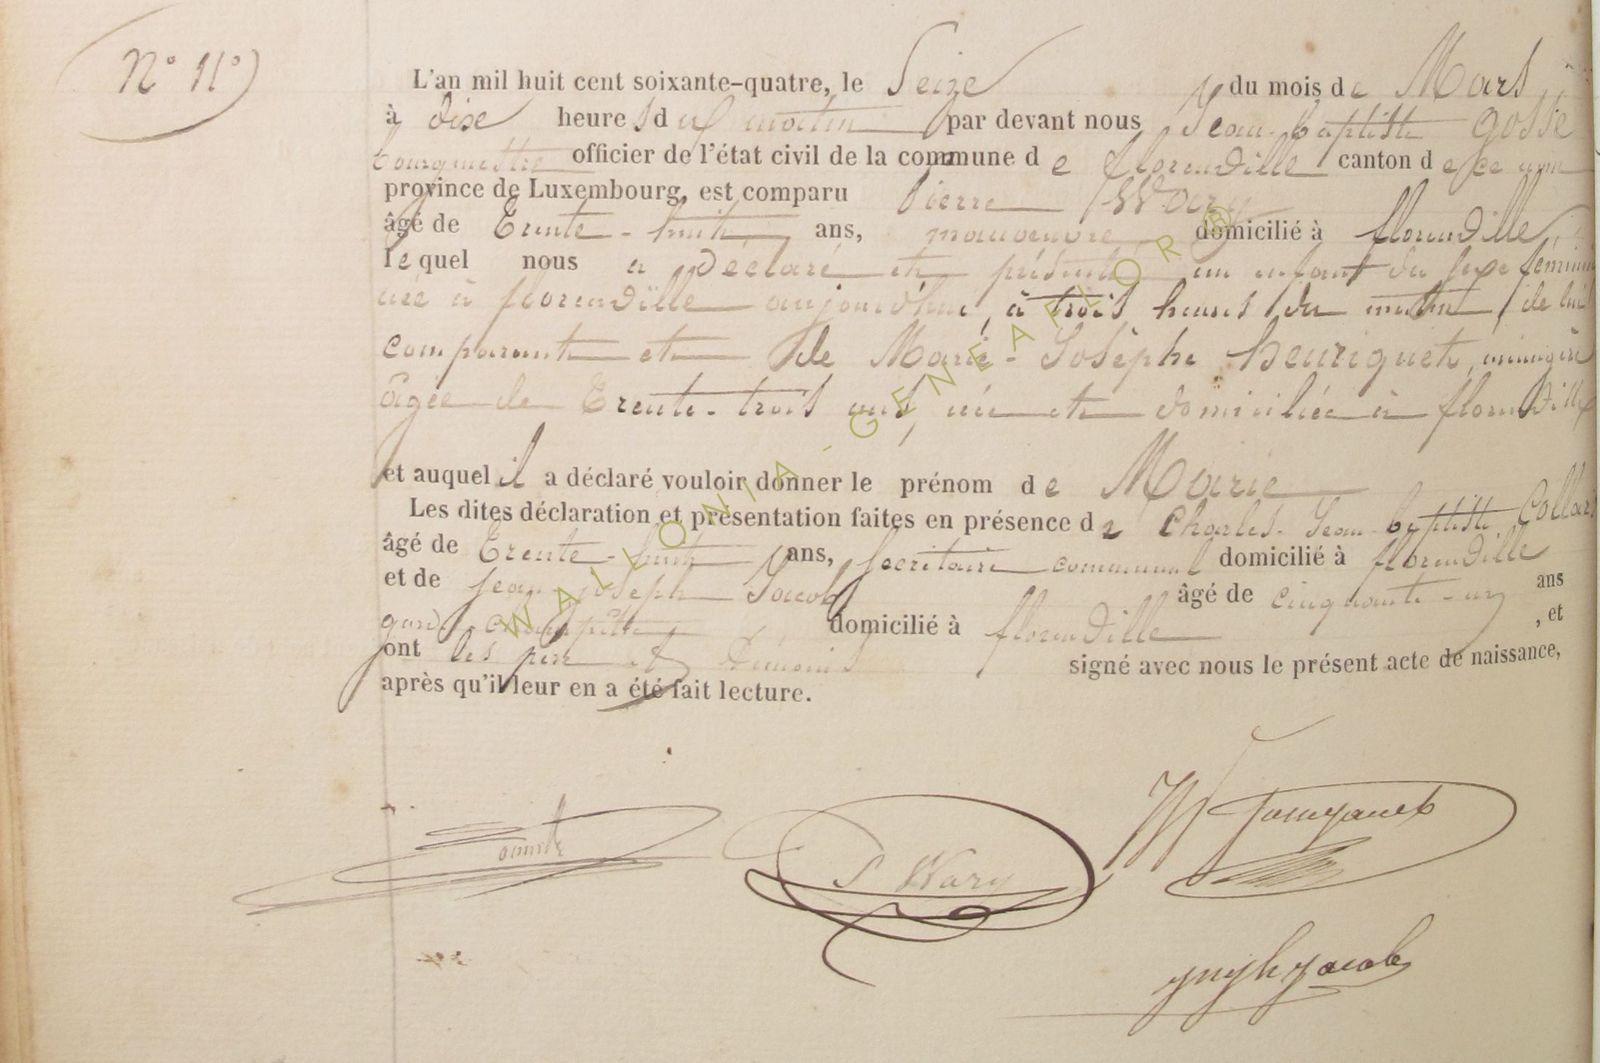 N° 11°
L'an mil huit cent soixante-quatre, le Seize du mois de Mars
à dix heures du matin par devant nous Jean-baptiste Gosse
bourgmestre officier de l'état civil de la commune de florenville canton de ce nom
province de Luxembourg, est comparu Pierre Wary
âgé de Trente-huit ans, manoeuvre domicilié à florenville,
lequel nous a déclaré et présenté un enfant du sexe féminin
née à florenville aujourd'hui, à trois heures du matin, de lui
comparant et de Marie-Josèphe henriquet, ménagère
âgée de Trente-trois ans, née et domiciliée à florenville
et auquel il a déclaré vouloir donner le prénom de Marie
Les dites déclaration et présentation faites en présence de Charles-Jean-baptiste Collard
âgé de Trente-huit ans, secrétaire communal domicilié à florenville
et de Jean-joseph Jacob âgé de cinquante-un ans
garde champêtre domicilié à florenville , et
ont les père et témoins signé avec nous le présent acte de naissance,
après qu'il leur en a été fait lecture.
P Wary
Jacob
WALLONIA-GENEAFLOR®